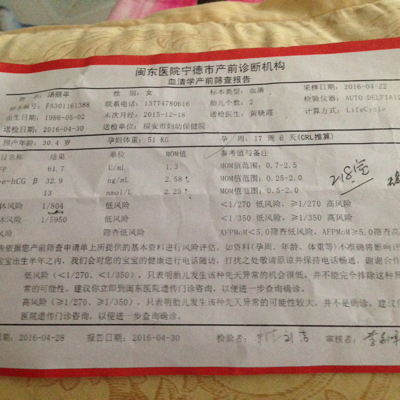 闽东医院宁德市产前诊断机构
血清学产前筛查报告
名 性 别 女 标本类型 血清 采样日期 2016-04-22
本编号 FA301161388 联系电话 13774780616 胎儿个数 检验仪器
出生日期 1986-05-02 末次月经 2015-12-18 送检医生 计算方法 LifeCycle
送检日期 2016-04-30 送检单位 福安市妇幼保健院
预产年龄 30.4 岁 孕妇体重 51 KG 孕/周: 17 周 6 天(CRL推算)
结果 单位 MOM值 参考值与备注
FP 61.7 U/mL 1.3 MOM值范围: 0.7-2.5
e-hCG β 32.9 ng/mL 2.58 MOM值范围: 0.25-2.0
13 nmol/L 2.23 MOM值范围: 0.5-2.0
体风险 1/804 低风险 <1/270 低风险, ≥1/270 高风险
体风险 1/5950 低风险 <1/350 低风险, ≥1/350 高风险
低风险 AFPMoM<5.0筛查低风险, AFPMoM≥5.0筛查高
告依据您产前筛查申请单上所提供的基本资料进行风险评估, 如资料(孕周、年龄、体重等)不准确将影响评
宝宝出生半年之内, 我们会对您的宝宝的健康进行电话随访, 打扰之处敬请原谅并保持电话畅通,
低风险 (<1/270、<1/350), 只表明胎儿发生该种先天异常的机会很低, 并不能完全排除这种异
常的可能性。建议你立即到闽东医院遗传门诊咨询, 以便进一步查询确诊。
高风险 (≥1/270、≥1/350), 只表明胎儿发生该种先天异常的可能性较大, 并不是确诊。建议
医院遗传门诊咨询, 以便进一步查询确诊。
日期 2016-04-28 报告日期 2016-04-30 检验者: 审核者: